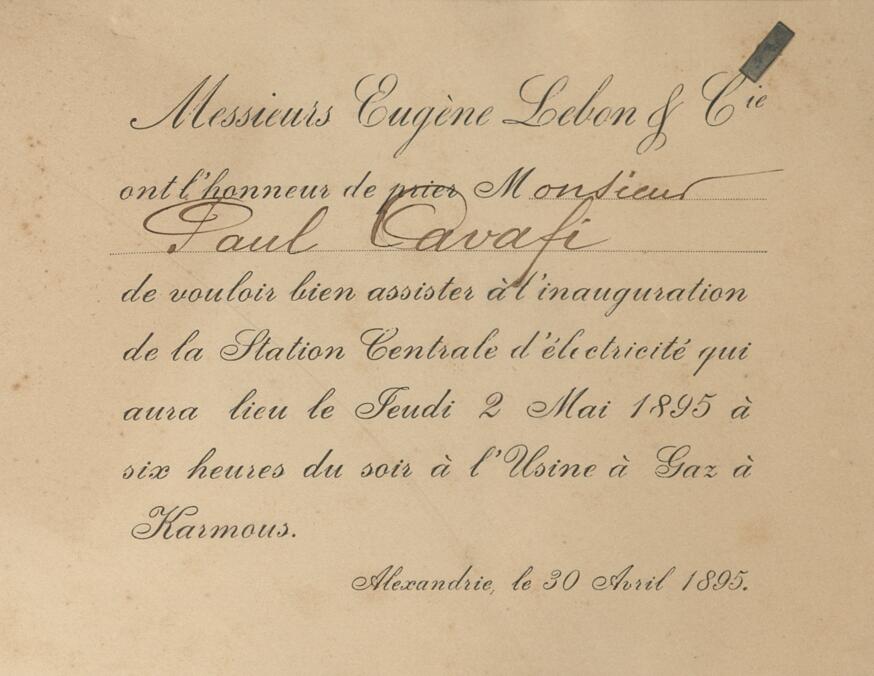 Messieurs Eugène Lebon & Cie
ont l'honneur de prier Monsieur
Paul Cavafi
de vouloir bien assister à l'inauguration
de la Station Centrale d'électricité qui
aura lieu le Jeudi 2 Mai 1895 à
six heures du soir à l'Usine à Gaz à
Karmous.
Alexandrie, le 30 Avril 1895.